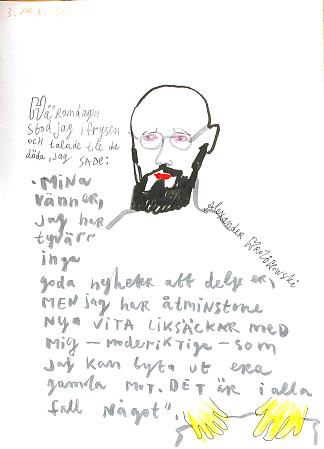 Häromdagen
stod jag i frysen
och talade till de
döda, jag
sade:
- Mina
vänner,
jag har
tyvärr
inga
goda nyheter att delge er,
men jag har åtminstone
nya vita liksäckar med
mig – moderiktiga – som
jag kan byta ut era
gamla mot. Det är i alla
fall något".
Alexander